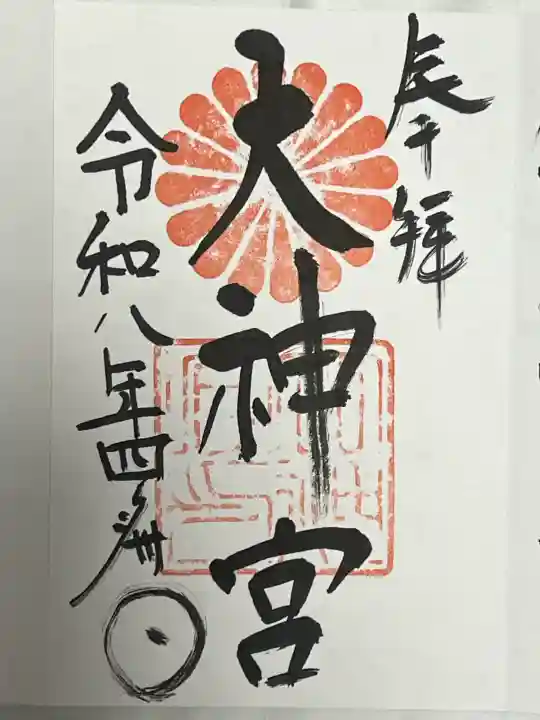 奉拝
大神宮
令和八年四月